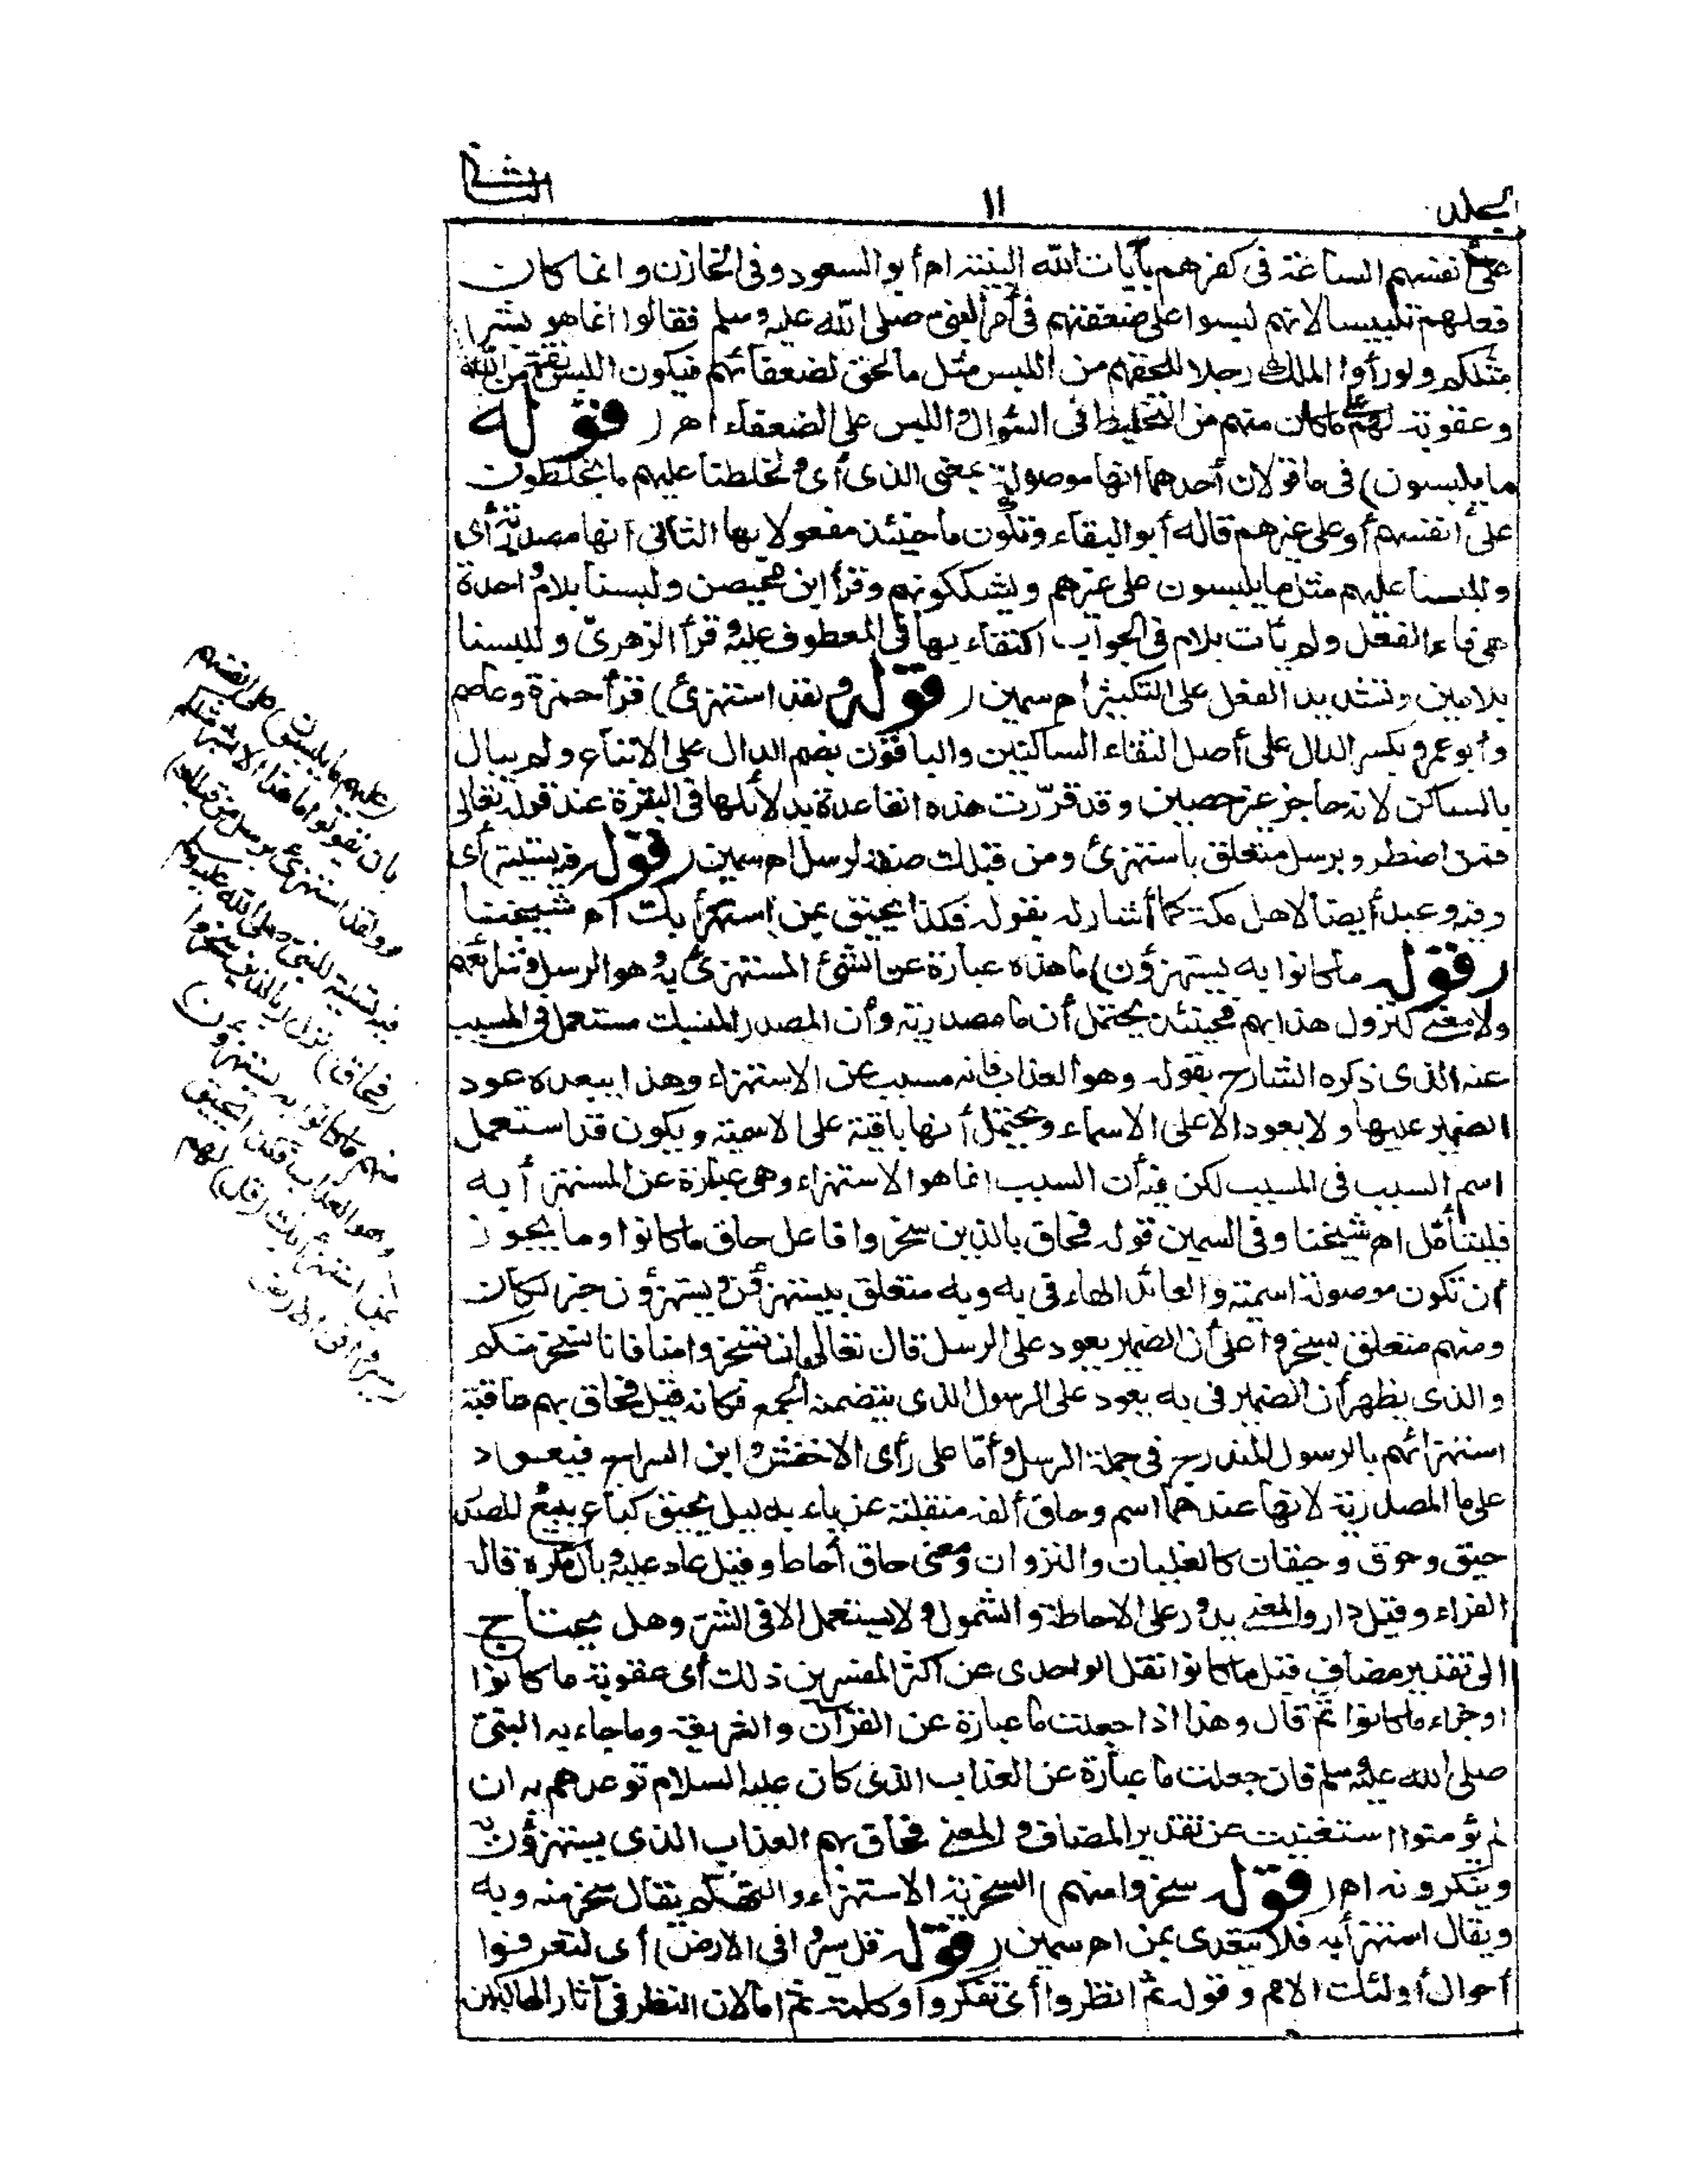 المجلد
١١
الثانى
على أنفسهم الساعة فى كفرهم بآيات الله البينة اه أبو السعود وفى الخازن وانما كان
فعلهم تلبيسا لانهم لبسوا على ضعفتهم فى أمر النبى صلى الله عليه وسلم فقالوا انما هو بشر
مثلكم ولو رأوا الملك رجلا للحقهم من اللبس مثل ما لحق لضعفائهم فيكون اللبس نقمة من الله
وعقوبة لهم على ما كان منهم من التخليط فى السؤال واللبس على الضعفاء اه (قوله
ما يلبسون) فى ما قولان أحدهما انها موصولة بمعنى الذى أى ولخلطنا عليهم ما يخلطون
على أنفسهم أو على غيرهم قاله أبو البقاء وتكون ما حينئذ مفعولا بها الثانى انها مصدرية أى
وللبسنا عليهم مثل ما يلبسون على غيرهم ويشككونهم وقرأ ابن محيصن ولبسنا بلام واحدة
هى فاء الفعل ولم يأت بلام فى الجواب اكتفاء بها فى المعطوف عليه وقرأ الزهرى وللبسنا
بلامين وتشديد الفعل على التكثير اه سمين (قوله ولقد استهزئ) قرأ حمزة وعاصم
وأبو عمرو بكسر الدال على أصل التقاء الساكنين والباقون بضم الدال على الاتباع ولم يبال
بالساكن لانه حاجز غير حصين وقد قررت هذه القاعدة بدلائلها فى البقرة عند قوله تعالى
فمن اضطر وبرسل متعلق باستهزئ ومن قبلك صفة لرسل اه سمين (قوله فيه تسلية) أى
وفيه وعيد أيضا لاهل مكة كما أشار له بقوله فكذا يحيق بمن استهزأ بك اه شيخنا
(قوله ما كانوا به يستهزؤن) ما هذه عبارة عن الشئ المستهزئ به وهو الرسل وشرائعهم
ولا معنى لنزول هذا بهم فحينئذ يحتمل أن ما مصدرية وأن المصدر المنسبك مستعمل فى المسبب
عنه الذى ذكره الشارح بقوله وهو العذاب فانه مسبب عن الاستهزاء وهذا يبعده عود
الضمير عليها ولا يعود الا على الاسماء ويحتمل أنها باقية على الاسمية ويكون قد استعمل
اسم السبب فى المسبب لكن فيه أن السبب انما هو الاستهزاء وهى عبارة عن المستهزأ به
فليتأمل اه شيخنا وفى السمين قوله فحاق بالذين سخروا فاعل حاق ما كانوا وما يجوز
أن تكون موصولة اسمية والعائد الهاء فى به وبه متعلق بيستهزؤن ويستهزؤن خبر لكان
ومنهم متعلق بسخروا على أن الضمير يعود على الرسل قال تعالى ان تسخروا منا فانا نسخر منكم
والذى يظهر أن الضمير فى به يعود على الرسول الذى يتضمنه الجمع فكانه قيل فحاق بهم عاقبة
استهزائهم بالرسول المندرج فى جملة الرسل وأما على رأى الاخفش وابن السراج فيعود
على ما المصدرية لانها عندهما اسم وحاق ألفه منقلبة عن ياء بدليل يحيق كباع يبيع والمصدر
حيق وحوق وحيقان كالغليان والنزوان ومعنى حاق أحاط وقيل عاد عليه وبال مكره قاله
الفراء وقيل دار والمعنى يدور على الاحاطة والشمول ولا يستعمل الا فى الشر وهل يحتاج
الى تقدير مضاف قبل ما كانوا نقل الواحدى عن أكثر المفسرين ذلك أى عقوبة ما كانوا
او جزاء ما كانوا ثم قال وهذا اذا جعلت ما عبارة عن القرآن والشريعة وما جاء به النبى
صلى الله عليه وسلم فان جعلت ما عبارة عن العذاب الذى كان عليه السلام توعدهم به ان
لم يؤمنوا استغنيت عن تقدير المضاف والمعنى فحاق بهم العذاب الذى يستهزؤن به
وينكرونه اه (قوله سخروا منهم) السخرية الاستهزاء والتهكم يقال سخر منه وبه
ويقال استهزأ به فلا يتعدى بمن اه سمين (قوله قل سيروا فى الارض) أى لتعرفوا
أحوال أولئك الامم وقوله ثم انظروا أى تفكروا وكلمة ثم اما لان النظر فى آثار الهالكين
عليهم ما يلبسون) على أنفسهم
بان يقولوا ما هذا الا بشر مثلكم
(ولقد استهزئ برسل من قبلك)
فيه تسلية للنبى صلى الله عليه وسلم
(فحاق) نزل (بالذين سخروا
منهم ما كانوا به يستهزؤن)
وهو العذاب فكذا يحيق
بمن استهزأ بك (قل) لهم
(سيروا فى الارض